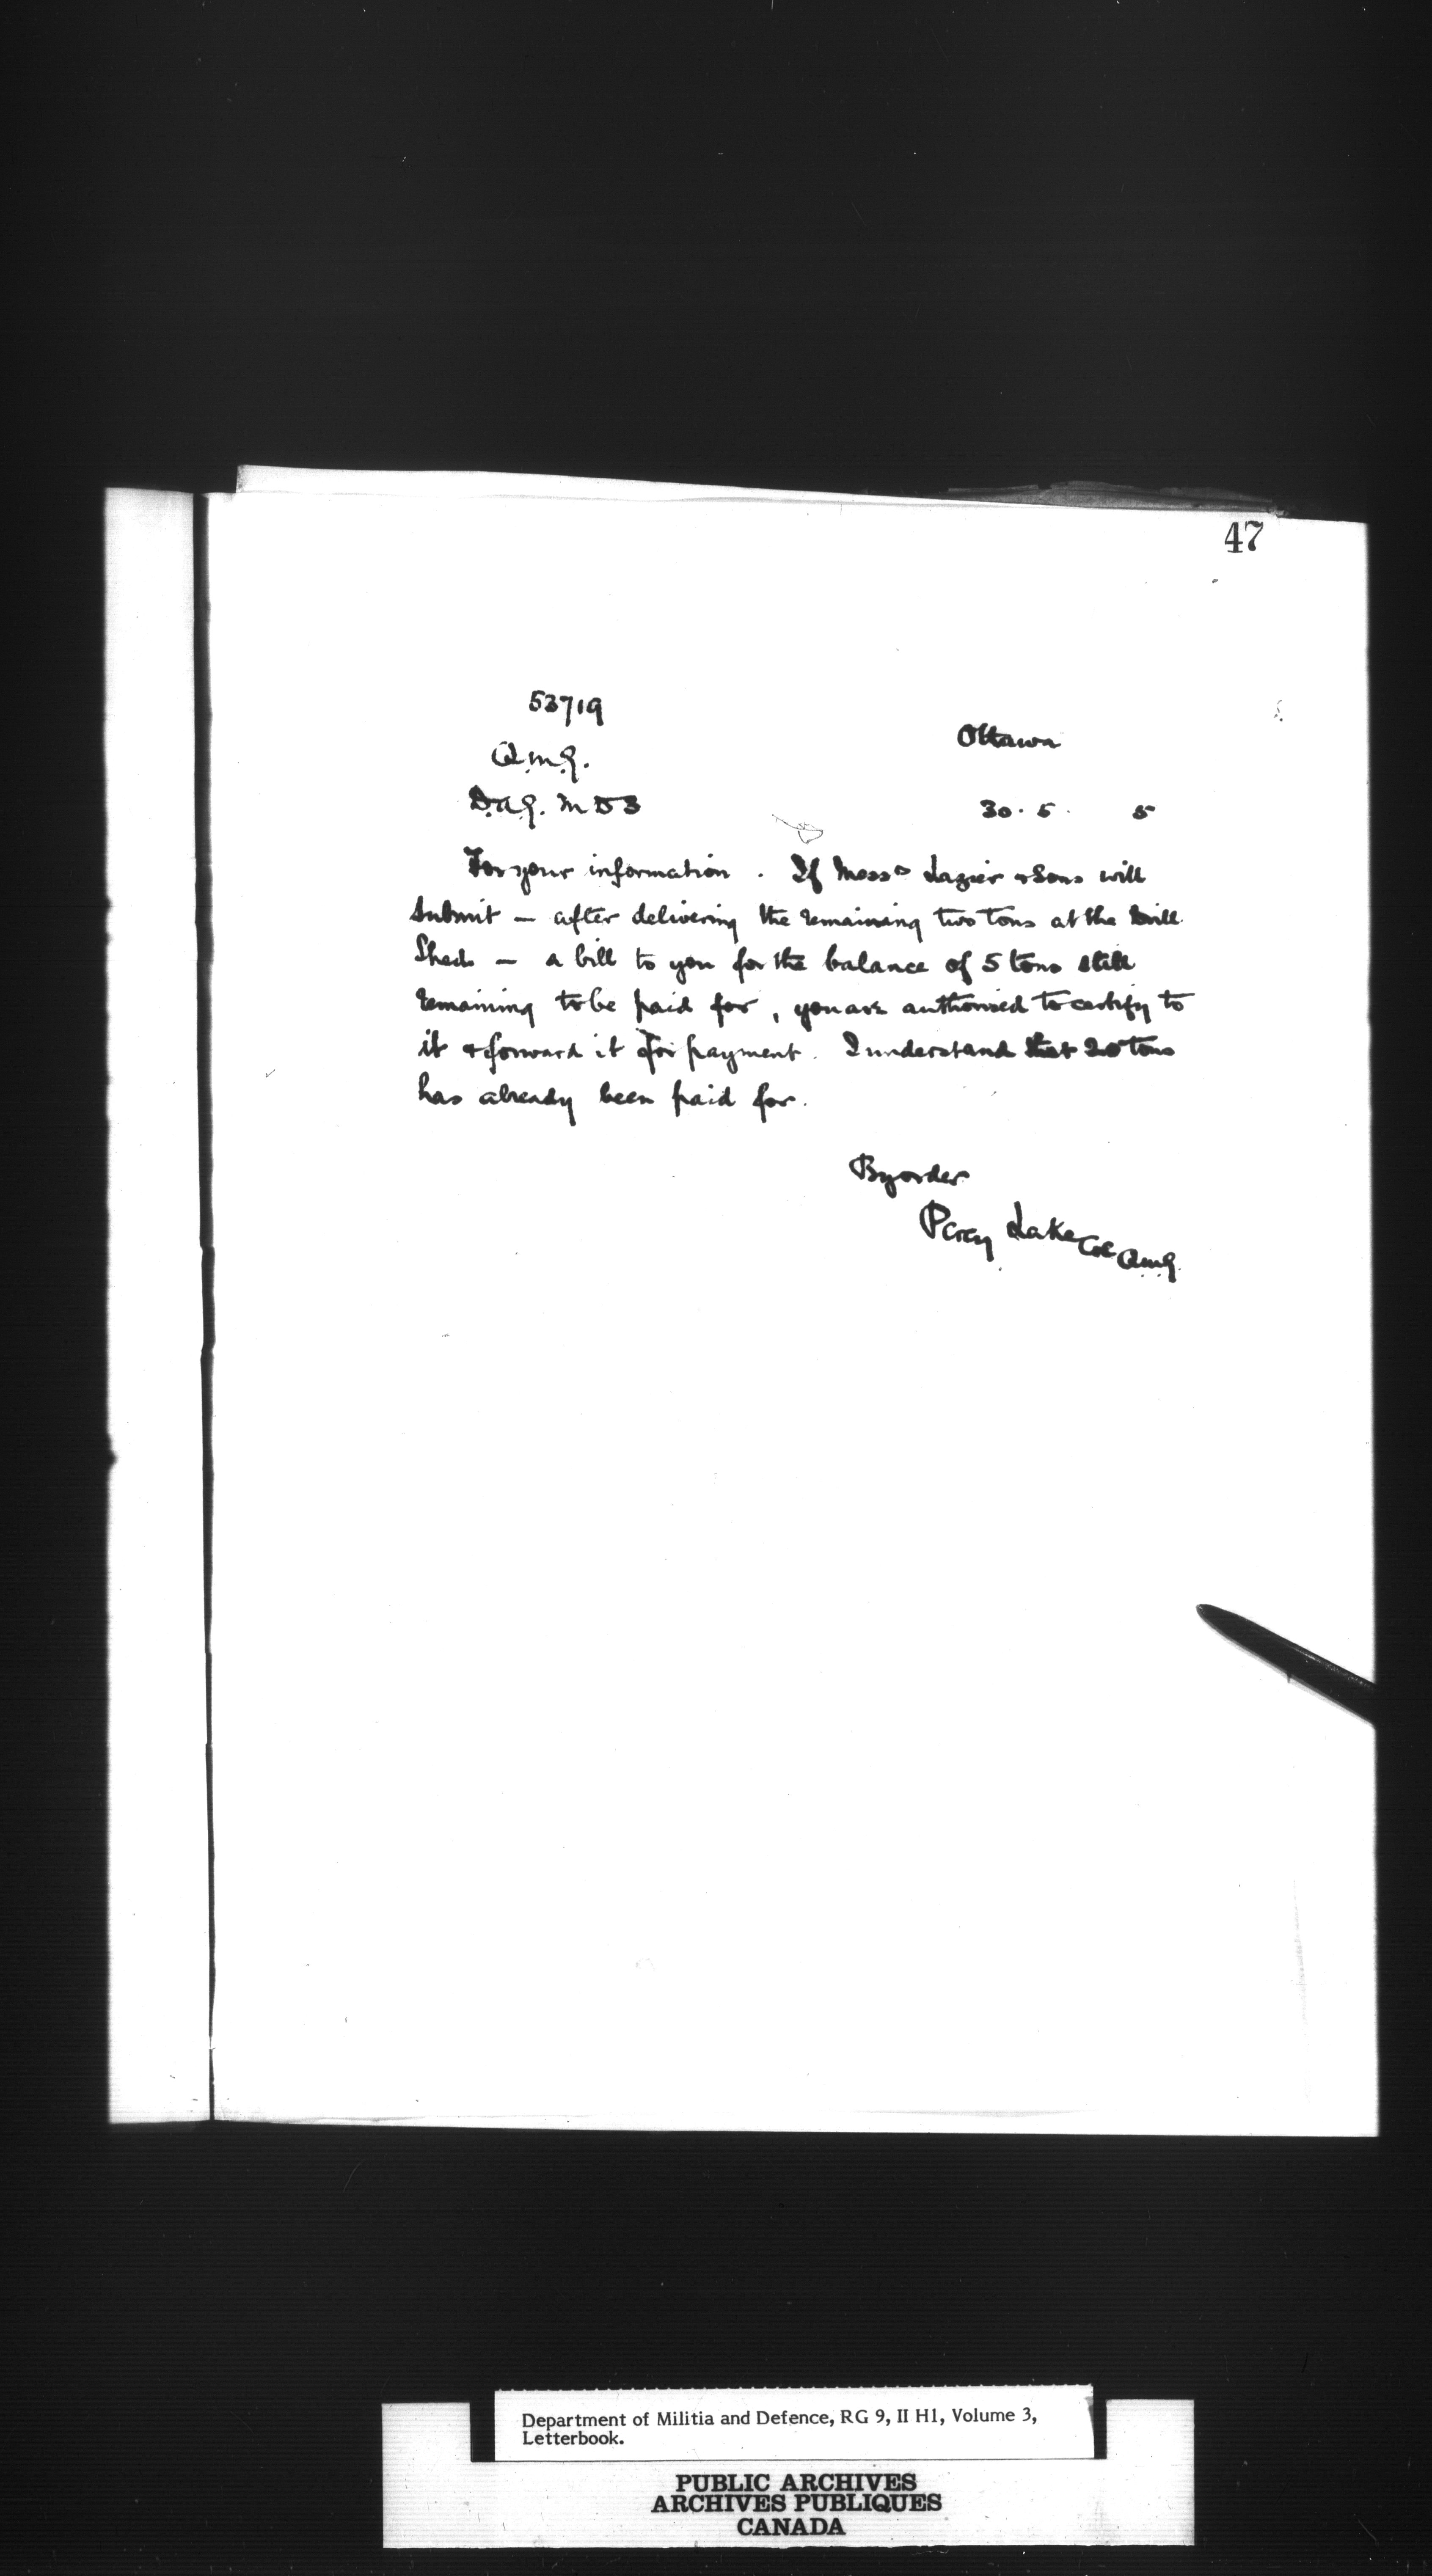 47
53719
Q.M.G.
Ottawa
D.A.G. M D 3
30. 5. 5
For your information. If Messrs Lazier & Sons will
submit — after delivering the remaining two tons at the Drill
Shed — a bill to you for the balance of 5 tons still
remaining to be paid for, you are authorised to certify to
it & forward it for payment. I understand that 20 tons
has already been paid for.
By order
Percy Lake Col QMG.
Department of Militia and Defence, RG 9, II H1, Volume 3,
Letterbook.
PUBLIC ARCHIVES
ARCHIVES PUBLIQUES
CANADA